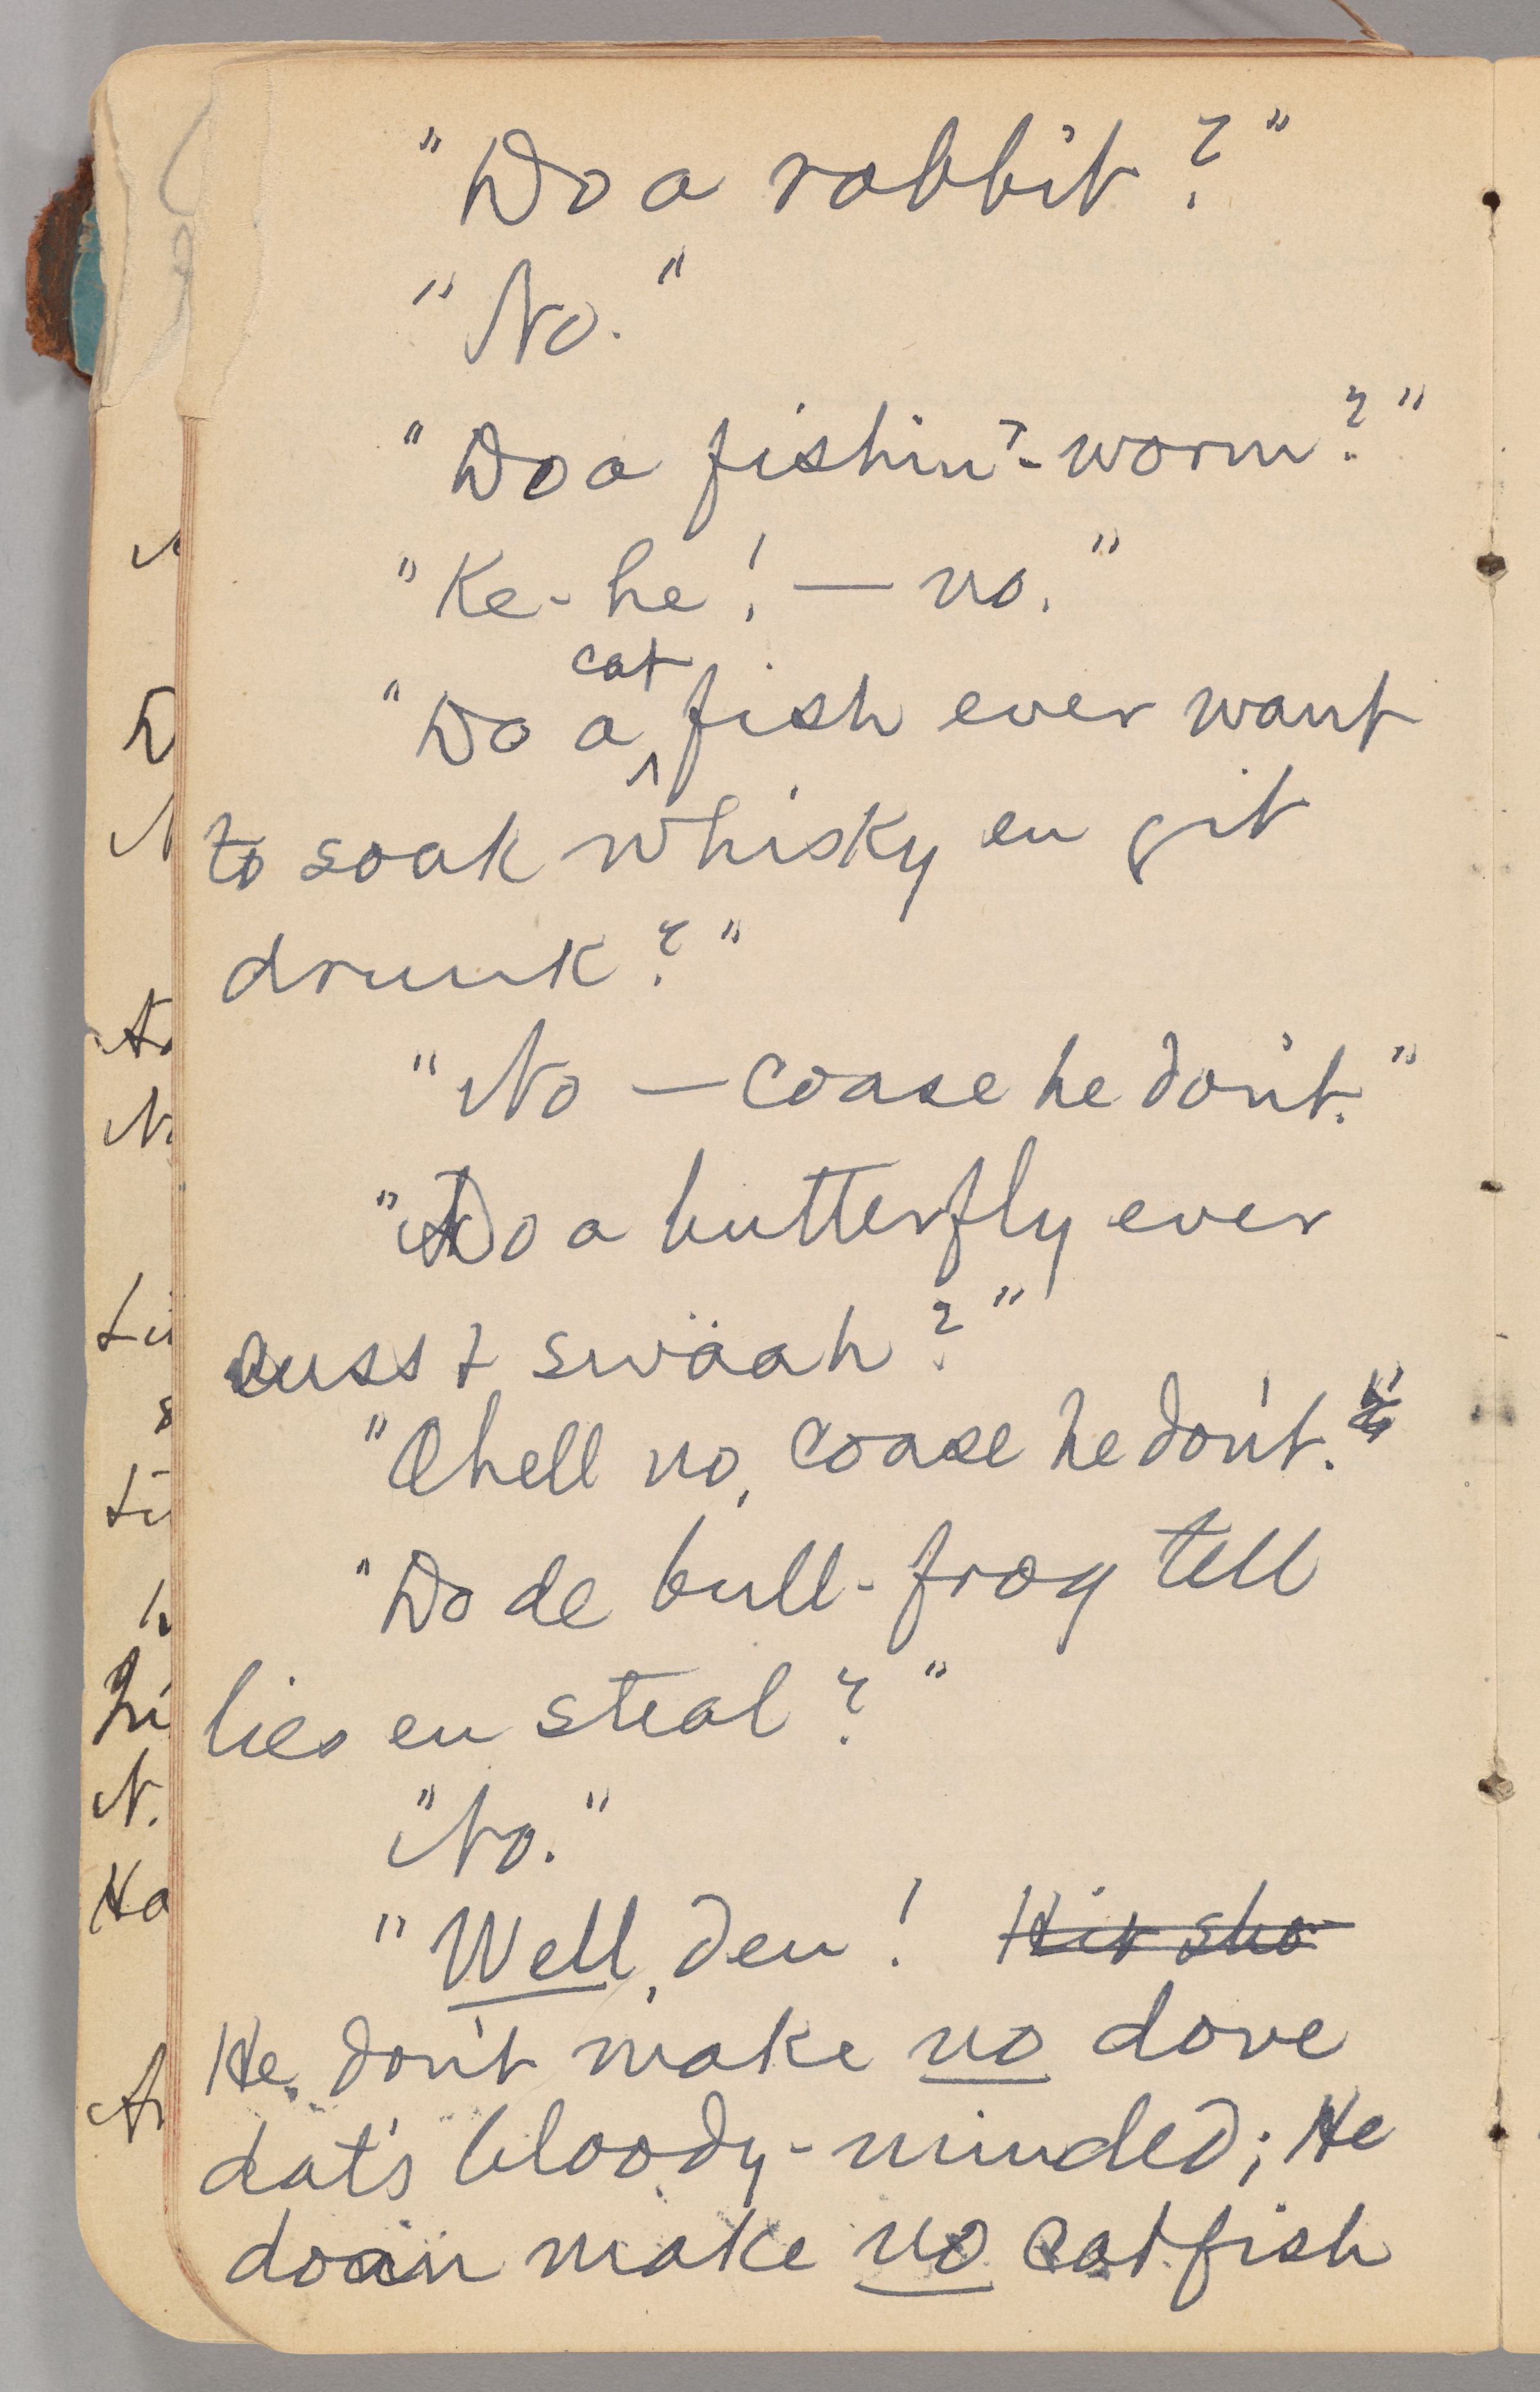 "Do a rabbit?"
"No."
"Do a fishin'-worm?"
"Ke-he! — no."
"Do a catfish ever want
to soak whisky en git
drunk?"
"No — coase he don't."
"Do a butterfly ever
cuss & swäah?"
"Chell no, coase he don't."
"Do de bull-frog tell
lies en steal?"
"No."
"Well, den! Hit sho
He don't make no dove
dat's bloody-minded; He
doan make no catfish